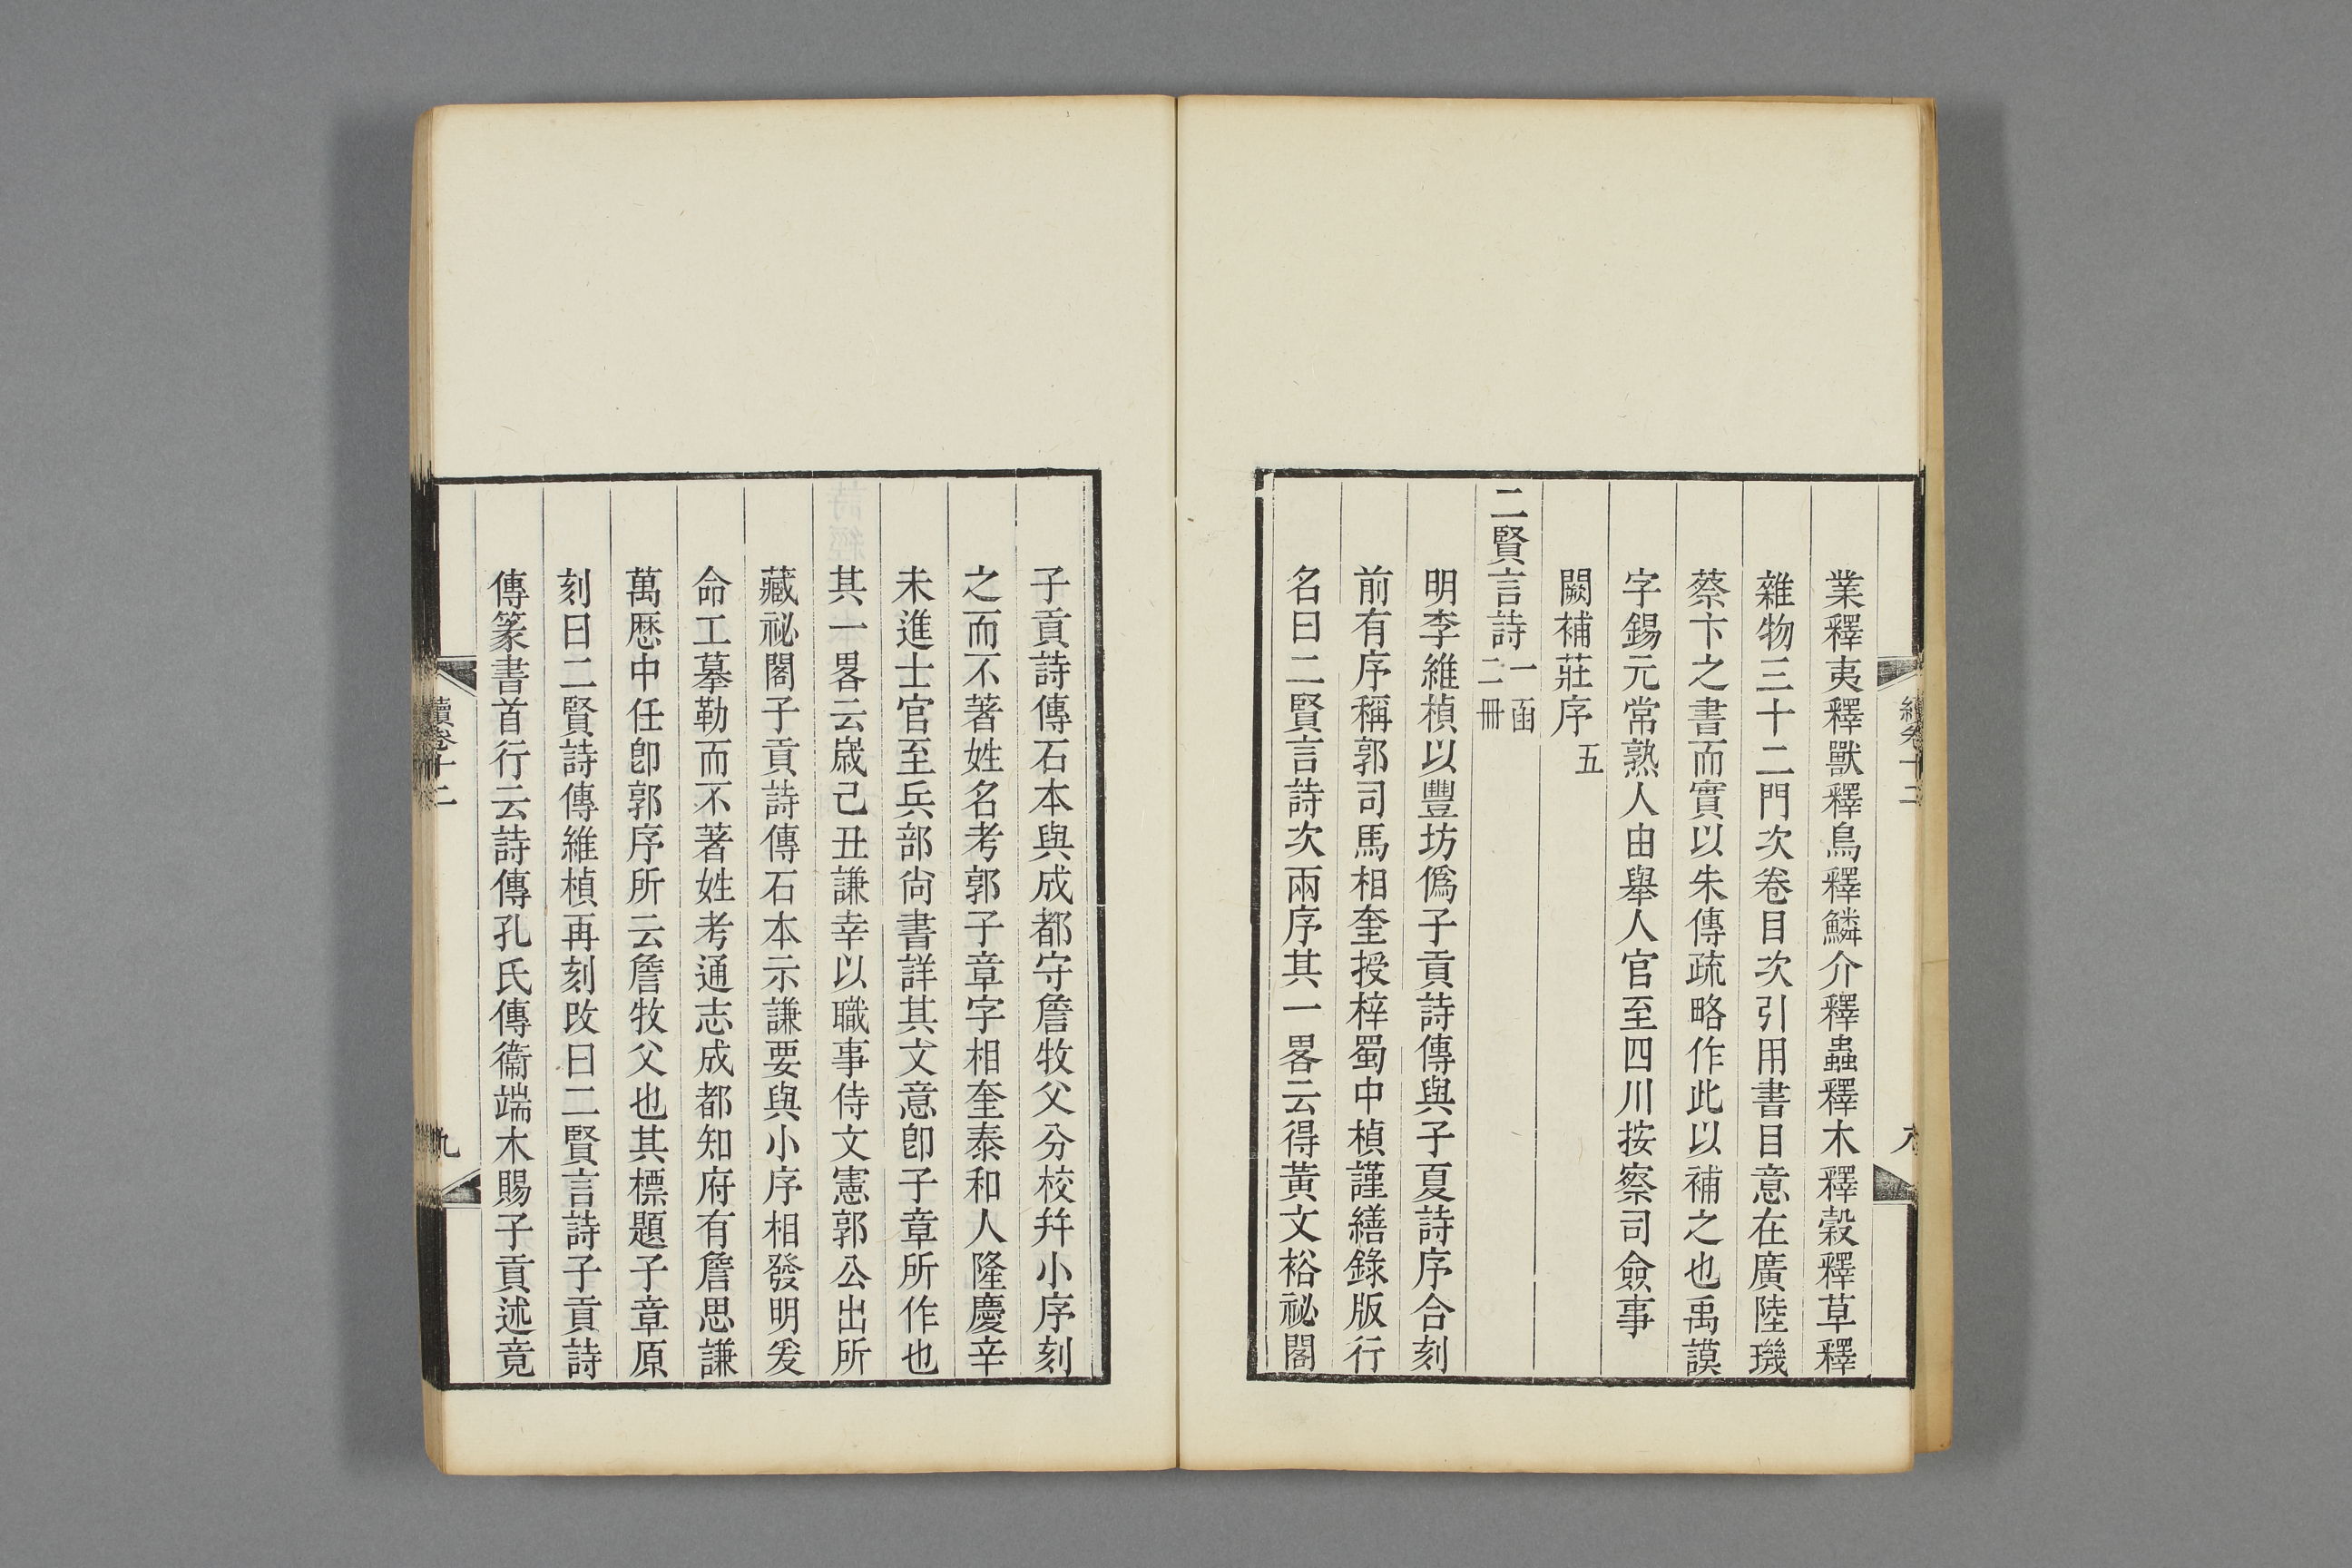 業釋夷釋獸釋鳥釋鱗介釋蟲釋木釋穀釋草釋
雜物三十二門次卷目次引用書目意在廣陸璣
蔡卞之書而實以朱傳疏略作此以補之也禹謨
字錫元常熟人由舉人官至四川按察司僉事
闕補莊序五
二賢言詩一函二冊
明李維楨以豐坊僞子貢詩傳與子夏詩序合刻
前有序稱郭司馬相奎授梓蜀中楨謹繕錄版行
名曰二賢言詩次兩序其一畧云得黃文裕祕閣
子貢詩傳石本與成都守詹牧父分校幷小序刻
之而不著姓名考郭子章字相奎泰和人隆慶辛
未進士官至兵部尚書詳其文意卽子章所作也
其一畧云嵗己丑謙幸以職事侍文憲郭公出所
藏祕閣子貢詩傳石本示謙要與小序相發明爰
命工摹勒而不著姓考通志成都知府有詹思謙
萬厯中任卽郭序所云詹牧父也其標題子章原
刻曰二賢詩傳維楨再刻改曰二賢言詩子貢詩
傳篆書首行云詩傳孔氏傳衞端木賜子貢述竟
續卷十二
九